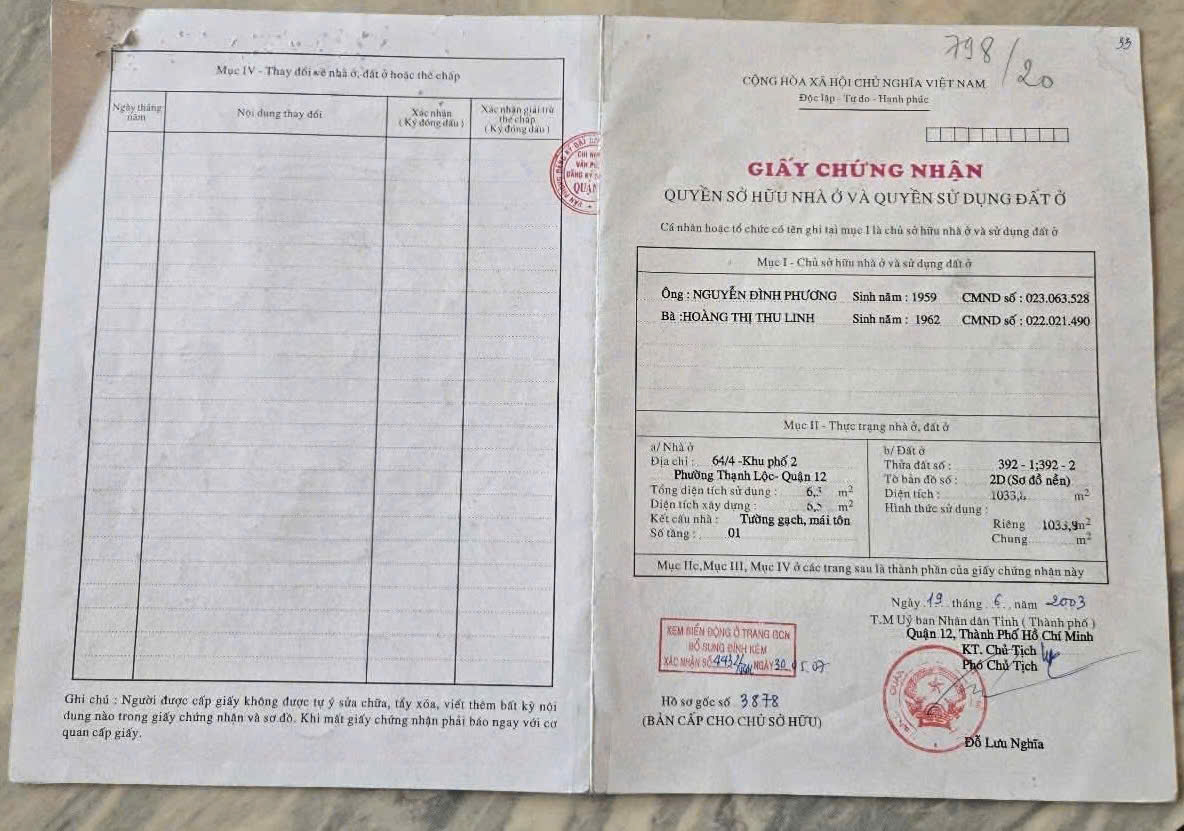 Mục IV - Thay đổi về nhà ở, đất ở hoặc thế chấp
Ngày tháng năm
Nội dung thay đổi
Xác nhận
( Ký đóng dấu )
Xác nhận giải trừ
thế chấp
( Ký đóng dấu )
Ghi chú : Người được cấp giấy không được tự ý sửa chữa, tẩy xóa, viết thêm bất kỳ nội
dung nào trong giấy chứng nhận và sơ đồ. Khi mất giấy chứng nhận phải báo ngay với cơ
quan cấp giấy.
798/20
33
CỘNG HÒA XÃ HỘI CHỦ NGHĨA VIỆT NAM
Độc lập - Tự do - Hạnh phúc
GIẤY CHỨNG NHẬN
QUYỀN SỞ HỮU NHÀ Ở VÀ QUYỀN SỬ DỤNG ĐẤT Ở
Cá nhân hoặc tổ chức có tên ghi tại mục I là chủ sở hữu nhà ở và sử dụng đất ở
Mục I - Chủ sở hữu nhà ở và sử dụng đất ở
Ông : NGUYỄN ĐÌNH PHƯƠNG Sinh năm : 1959 CMND số : 023.063.528
Bà :HOÀNG THỊ THU LINH Sinh năm : 1962 CMND số : 022.021.490
Mục II - Thực trạng nhà ở, đất ở
a/ Nhà ở
Địa chỉ : 64/4 -Khu phố 2
Phường Thạnh Lộc- Quận 12
Tổng diện tích sử dụng : m²
Diện tích xây dựng : m²
Kết cấu nhà : Tường gạch, mái tôn
Số tầng : 01
b/ Đất ở
Thửa đất số : 392 - 1;392 - 2
Tờ bản đồ số : 2D (Sơ đồ nền)
Diện tích : m²
Hình thức sử dụng :
Riêng 1033,9m²
Chung m²
Mục IIc,Mục III, Mục IV ở các trang sau là thành phần của giấy chứng nhận này
Ngày 19 tháng 6 năm 2003
T.M Uỷ ban Nhân dân Tỉnh ( Thành phố )
Quận 12, Thành Phố Hồ Chí Minh
KT. Chủ Tịch
Phó Chủ Tịch
XEM BIẾN ĐỘNG Ở TRANG GCN
BỔ SUNG ĐÍNH KÈM
XÁC NHẬN SỐ NGÀY 30
Hồ sơ gốc số 3878
(BẢN CẤP CHO CHỦ SỞ HỮU)
Đỗ Lưu Nghĩa